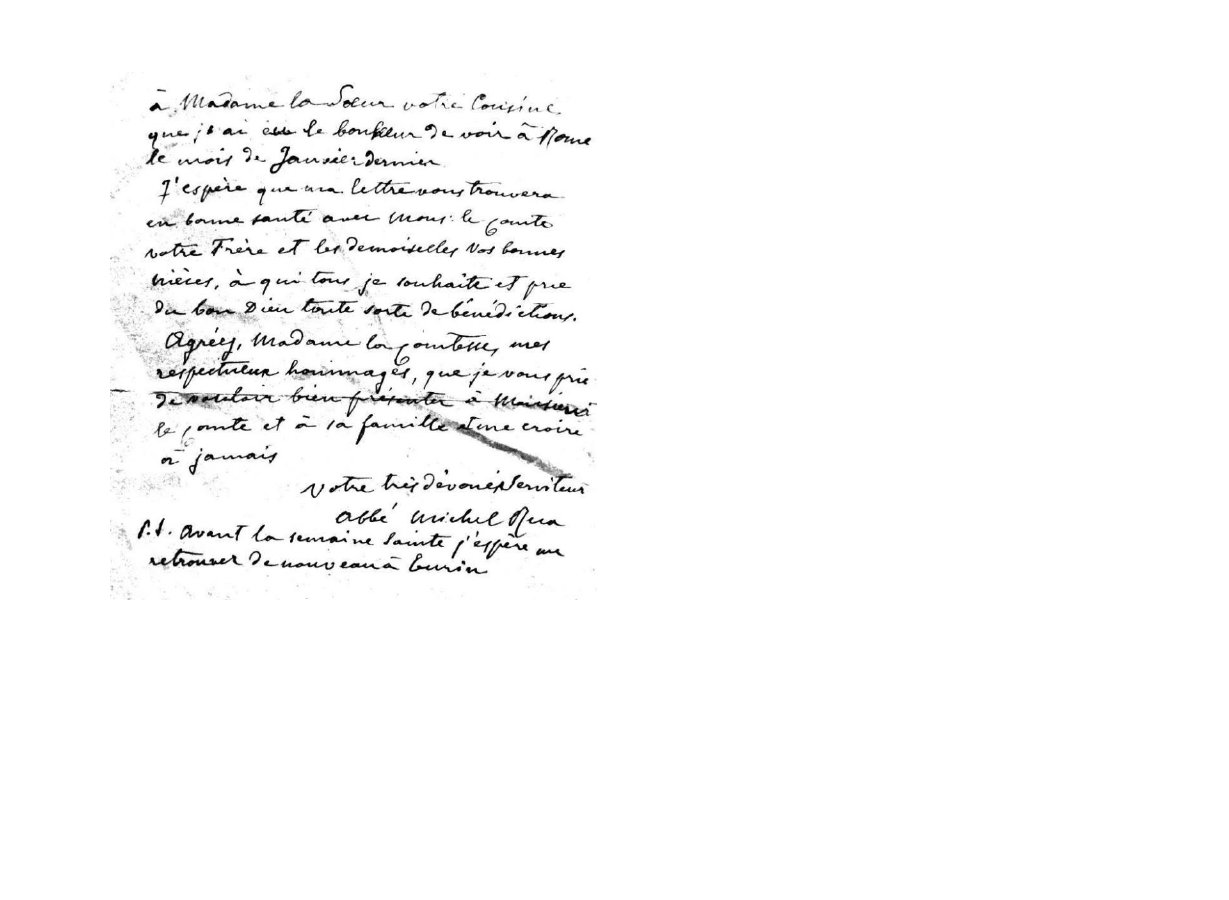 à Madame la Sœur votre Cousine
que j'ai eu le bonheur de voir à Rome
le mois de Janvier dernier
J'espère que ma lettre vous trouvera
en bonne santé avec Mons: le Comte
votre Frère et les demoiselles vos bonnes
nièces, à qui tous je souhaite et prie
du bon Dieu toute sorte de bénédictions.
Agréez, Madame la Comtesse, mes
respectueux hommages, que je vous prie
de vouloir bien présenter à Monsieur
le Comte et à sa famille et me croire
à jamais
Votre très dévoué Serviteur
Abbé Michel Rua
P.S. Avant la semaine Sainte j'espère me
retrouver de nouveau à Turin